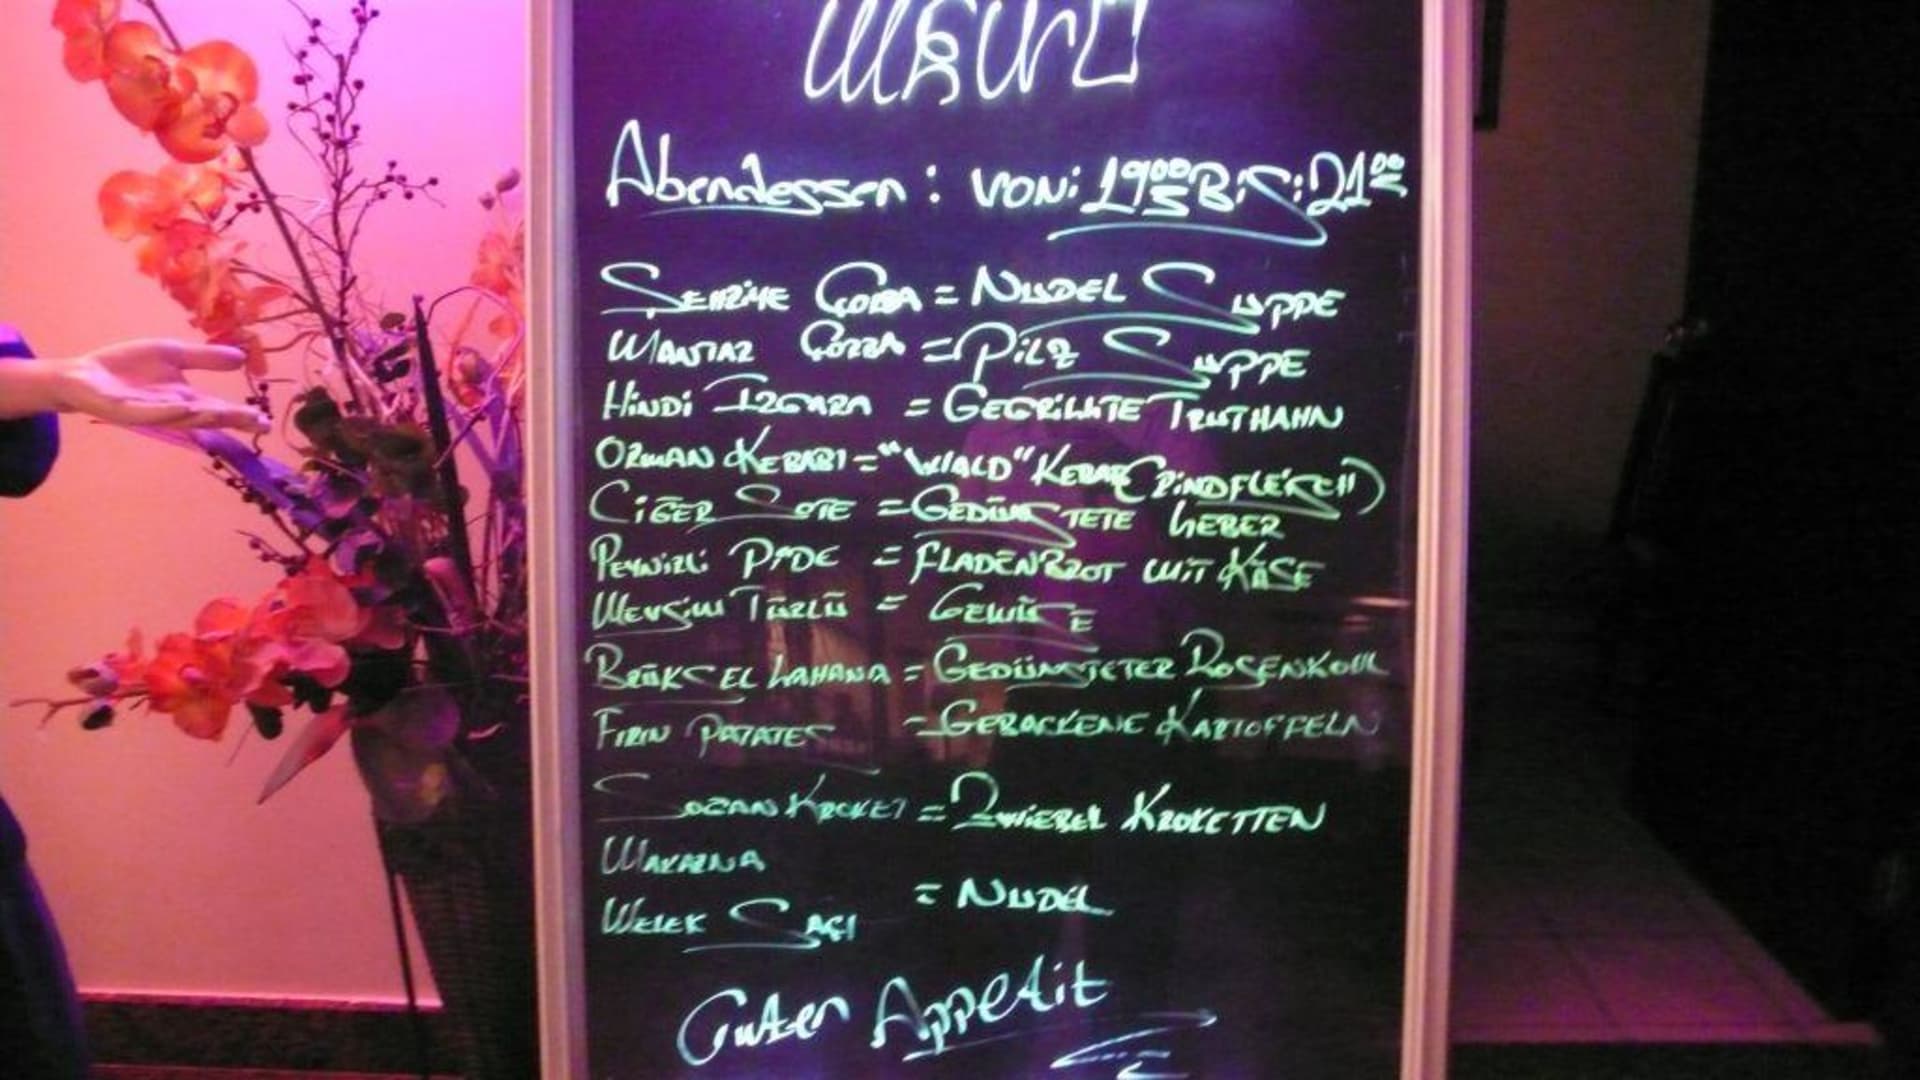 MENÜ
Abendessen: von: 19⁰⁰ Bis: 21⁰⁰
SEHRİYE ÇORBA = NUDEL SUPPE
MANTAR ÇORBA = PiLZ SUPPE
HiNDi IZGARA = GEGRiLLTE TRUTHAHN
ORMAN KEBABI = "WALD" KEBAB (RiNDFLEiSCH)
CiĞER SOTE = GEDÜNSTETE LEBER
PEYNiRLi PiDE = FLADENBROT MiT KÄSE
MEVSiM TÜRLÜ = GEMÜSE
BRÜKSEL LAHANA = GEDÜNSTETER ROSENKOHL
FIRIN PATATES = GEBACKENE KARTOFFELN
SOĞAN KROKET = ZWiEBEL KROKETTEN
MAKARNA
= NUDEL
MELEK SAÇI
Guten Appetit